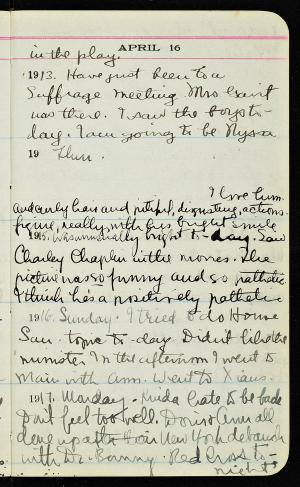 in the play.
APRIL 16
1913. Have just been to a
Suffrage meeting Mrs
was there. I saw the boys to-
day. I am going to be Nyssa
19 Thur.
I love him
and curly hair and pitiful, disgusting, actions.
figure, really, with his bright smile
1915. Was unusually bright to-day. Saw
Charley Chaplin in the movies. The
picture was so funny and so pathetic
I think he's a positively pathetic
1916. Sunday. I tried to do Home
Sun. topic to-day. Didn't like the
minister. In the afternoon I went to
Main with Ann. Went to Xians.
1917. Monday. Kinda hate to be back
Don't feel too well. Doris & Ann all
done up after their New York debauch
with Dr. Bonny. Red Cross to-
night